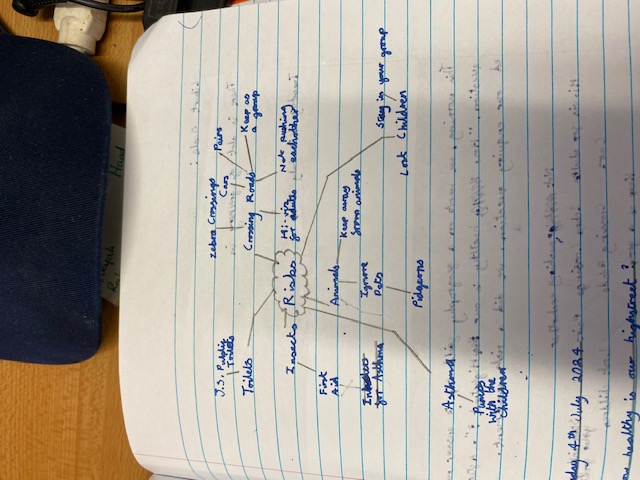 Public
Toilets
Toilets
Zebra Crossings
Cars
Pairs
Keep as
a group
Crossing Roads
Hi-vis
for adults
Not pushing
eachother
Risks
Insects
First
Aid
for Asthma
Animals
Keep away
from animals
Ignore
Pets
Pidgeons
Stay in your group
Lost Children
Asthma
Pumps
with the
children
day 4th July 2024
ow healthy is our highstreet?